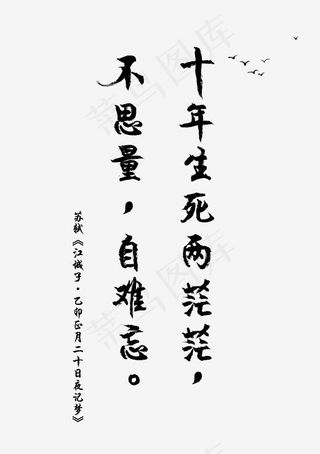 十年生死两茫茫，
不思量，自难忘。
苏轼《江城子·乙卯正月二十日夜记梦》
菜鸟图库